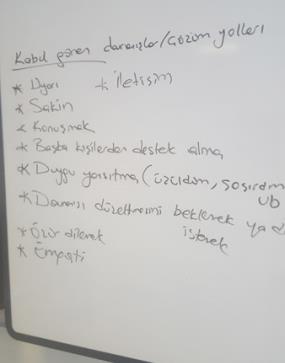 Kabul gören davranışlar/çözüm yolları
* Uyarı * iletişim
* Sakin
* Konuşmak
* Başka kişilerden destek alma
* Duygu yansıtma (üzüldüm, şaşırdım
vb
* Davranışı düzeltmesini beklemek ya da
istemek
* Özür dilemek
* Empati